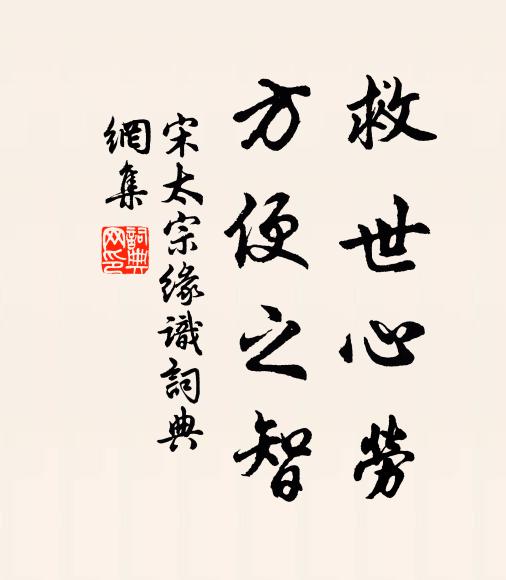 救世心勞
方便之智
宋太宗緣識詞典
網集
詞典
网印